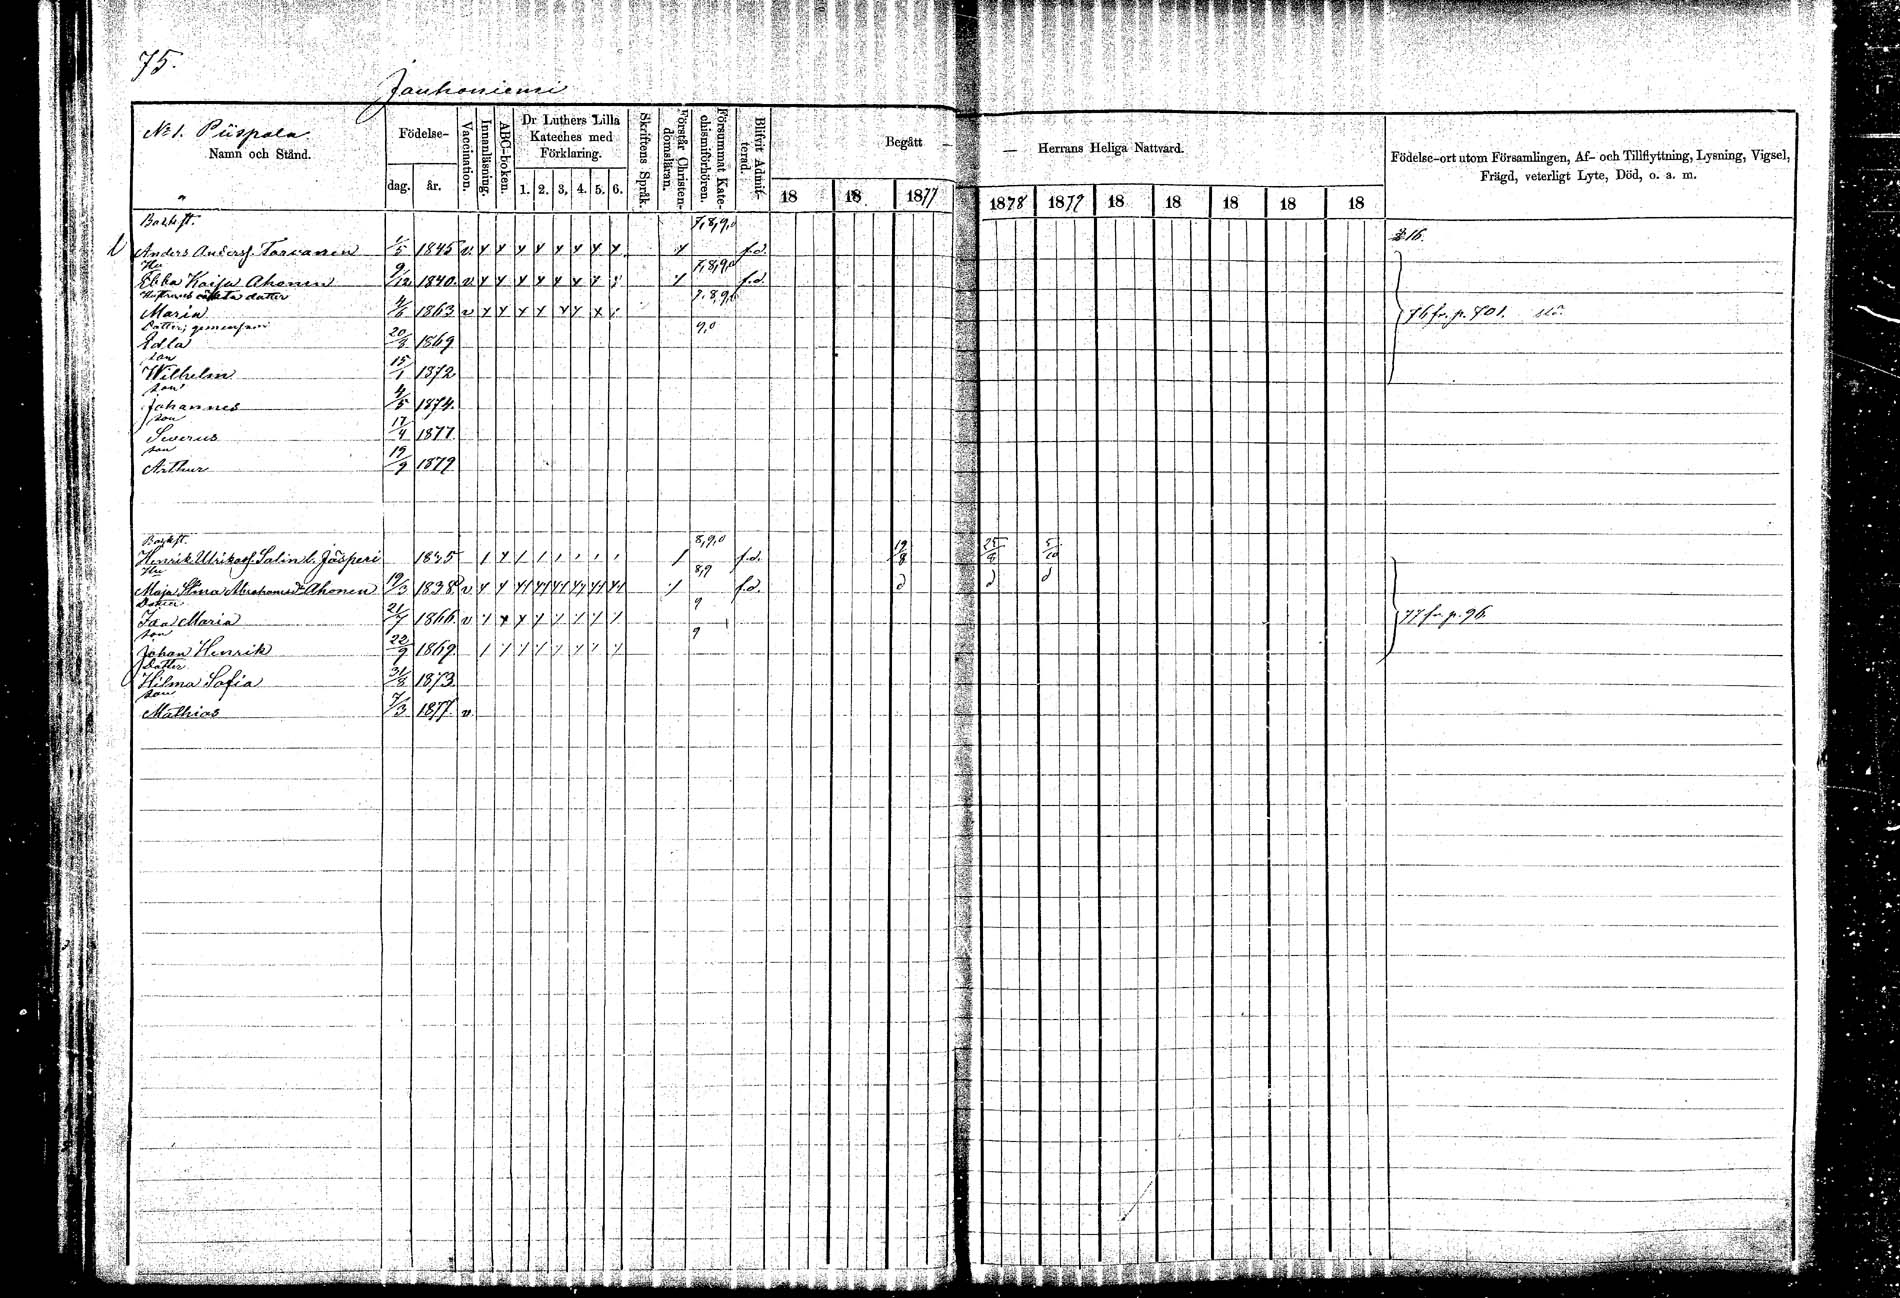 75.
Jauhoniemi
No 1. Piispala.
Namn och Stånd.
Födelse-
dag. år.
Vaccination.
Innanläsning.
ABC-boken.
Dr Luthers Lilla Kateches med Förklaring.
1. 2. 3. 4. 5. 6.
Skriftens Språk.
Förstår Christendomsläran.
Försummat Katechismiförhören.
Blifvit Admitterad.
Begått — — Herrans Heliga Nattvard.
18 18 1877 1878 1879 18 18 18 18 18
Födelse-ort utom Församlingen, Af- och Tillflyttning, Lysning, Vigsel,
Frägd, veterligt Lyte, Död, o. a. m.
7,8,9,0
16.
Anders Andersf. Torvanen 1/5 1845 v. f.d.
Hu 7,8,9,0
Ebba Kaisa Ahonen 9/12 1840. v. f.d.
datter 7,8,9,
Maria 4/6 1863 v 76 fr. p. 701.
Datter, gemensam 9,0
Edla 20/8 1869
son
Wilhelm 15/1 1872
son
Johannes 4/5 1874.
son
Severus 17/4 1877
son
Arthur 19/9 1879
8,9,0
Henrik Ulrikasf. Salin l. Jääperi 1835 f.d. 19/8 25/8 5/10
Hu 8,9
Maja Stina Abrahamsdr Ahonen 19/3 1838 v. f.d. d d d
Datter 9
Ida Maria 21/7 1866 v 77 fr. p. 96.
son 9
Johan Henrik 22/9 1869
Datter
Hilma Sofia 31/8 1873
son
Mathias 7/3 1877. v